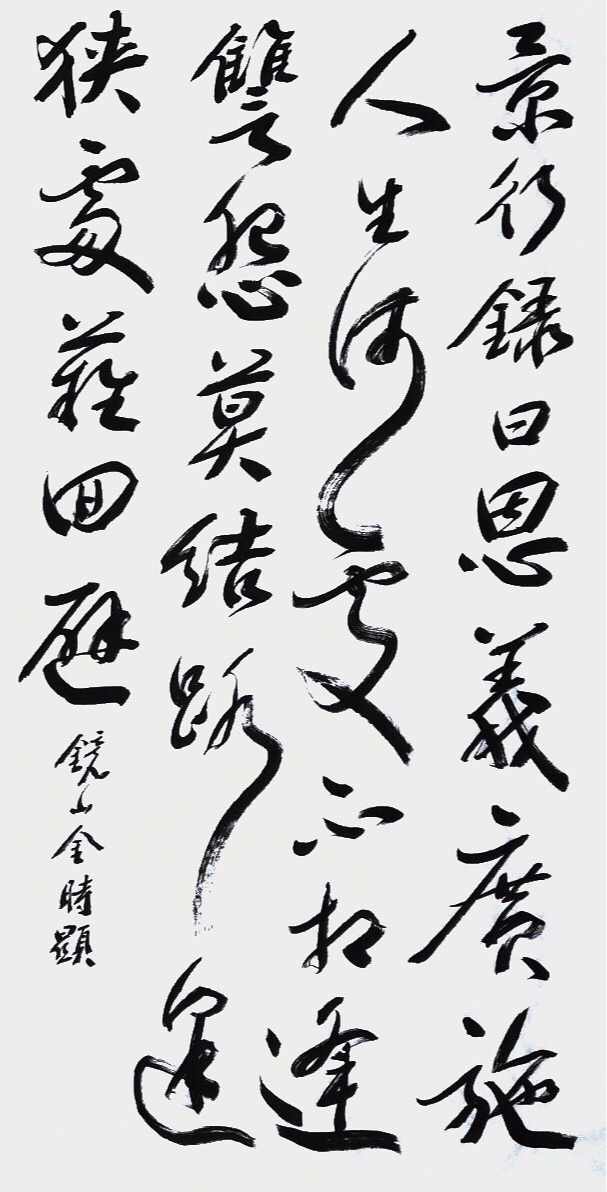 景行錄曰恩義廣施
人生何處不相逢
讐怨莫結路逢
狹處難回避
鏡山金時顯